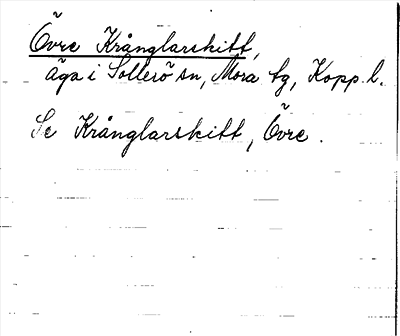 Övre Krånglarskitt,
äga i Sollerö sn, Mora tg, Kopp. l.
Se Krånglarskitt, Övre.